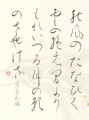 秋風のたなびく
雲の絶え間より
もれいづる月の影
のさやけさ